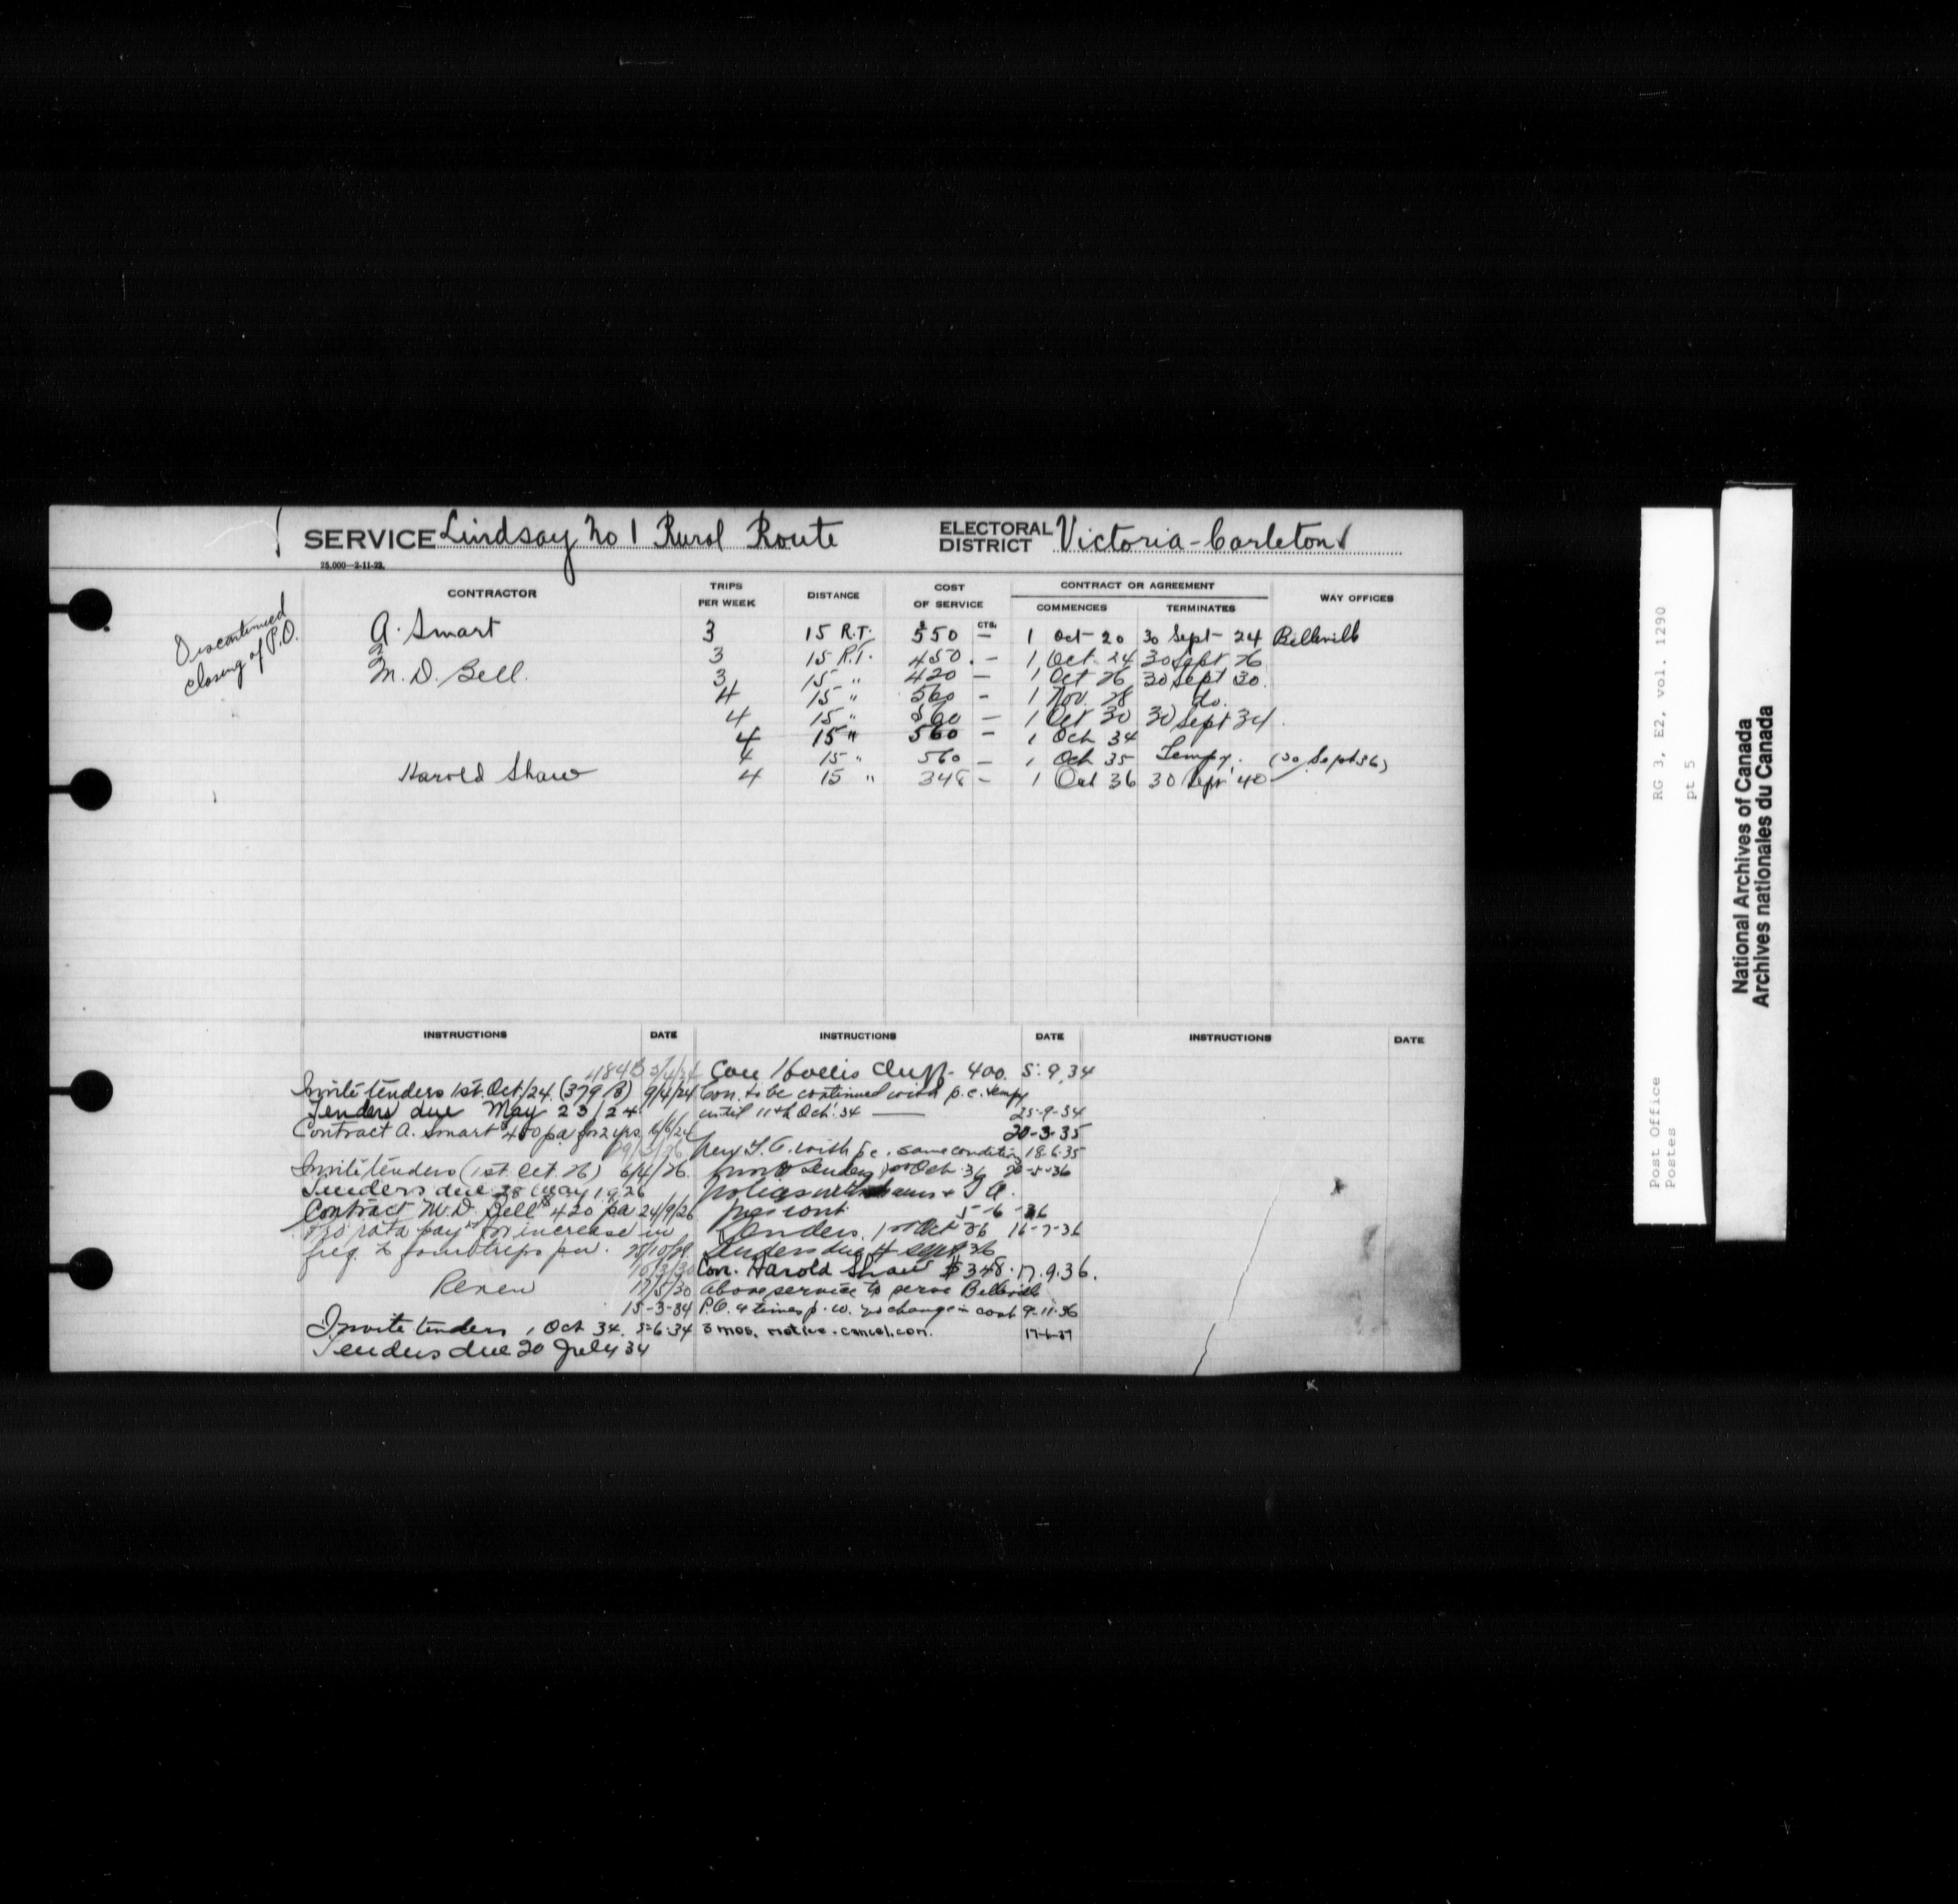 SERVICE Lindsay No 1 Rural Route ELECTORAL DISTRICT Victoria-Carleton
25,000—2-11-23.
CONTRACTOR TRIPS PER WEEK DISTANCE COST OF SERVICE CONTRACT OR AGREEMENT COMMENCES TERMINATES WAY OFFICES
$ CTS.
Discontinued
closing of P.O.
A. Smart 3 15 R.T. 550 — 1 Oct 20 30 Sept 24 Belleville
3 15 R.T. 450. — 1 Oct. 24 30 Sept 26
M. D. Bell. 3 15 " 420 — 1 Oct 26 30 Sept 30.
4 15 " 560 - 1 Nov. 28 do.
4 15 " 560 — 1 Oct 30 30 Sept 34.
4 15 " 560 - 1 Oct 34
4 15 " 560 — 1 Oct 35 Tempy. (30 Sept 36)
Harold Shaw 4 15 " 348 - 1 Oct 36 30 Sept 40
INSTRUCTIONS DATE INSTRUCTIONS DATE INSTRUCTIONS DATE
Invite tenders 1st. Oct/24. (379 B) 9/4/24
Tenders due May 23/24
Contract A. Smart 450 pa for 2 yrs.
Invite tenders (1st. Oct. 26) 6/4/26.
Tenders due 28 May 1926
Contract M. D. Bell 420 pa 24/9/26
Pro rata pay for increase in
freq. to four trips pw.
Renew 17/5/30
15-3-34
Invite tenders 1 Oct 34. 5-6-34
Tenders due 20 July 34
Con Hollis 400. 5.9.34
Con. to be continued with p.c. tempy
until 11th Oct. 34 — 25-9-34
20-3-35
New T. A. with p.c. same condition 18-6-35
Tenders 1st Oct. 36 20-5-36
pres cont 5-6-36
Tenders. 1st Oct 36 16-7-36
Tenders due 4 Sept 36
Con. Harold Shaw $348. 17.9.36.
Above service to serve Belleville
P.O. 4 times p.w. no change in cost 9-11-36
3 mos. notice. cancel. con. 17-6-37
RG 3, E2, vol. 1290
pt 5
Post Office
Postes
National Archives of Canada
Archives nationales du Canada